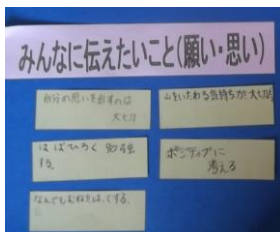 みんなに伝えたいこと(願い・思い)
自分の思いを出すのは
大切
人をいたわる気持ちが大切
はばひろく 勉強
する。
ポジティブに
考える
なんでも する。